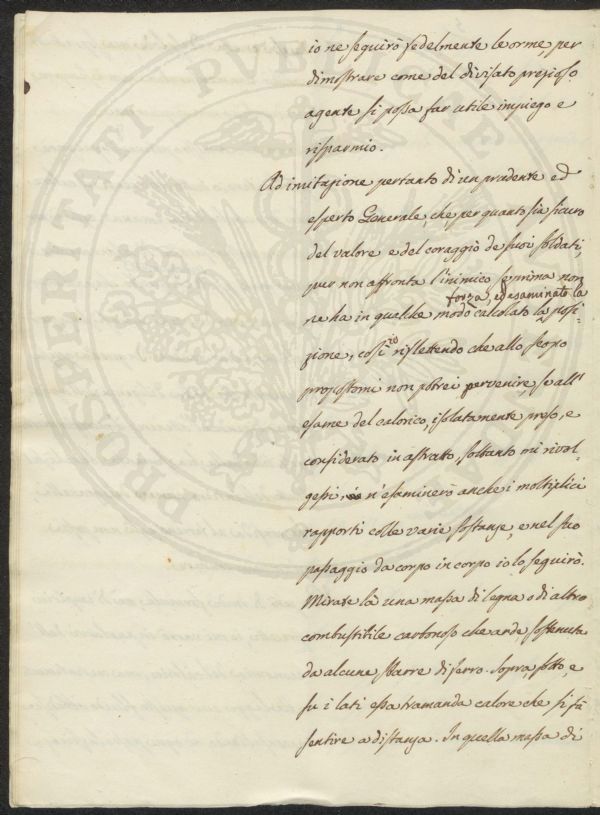 io ne seguirò fedelmente le orme, per
dimostrare come del divisato prezioso
agente si possa far utile impiego e
risparmio.
Ad imitazione pertanto di un prudente ed
esperto Generale, che, per quanto sia sicuro
del valore e del coraggio de suoi soldati,
pur non affronta l'inimico se prima non
forza, ed esaminato la
ne ha in qualche modo calcolato la posi-
zione, così io riflettendo che allo scopo
propostomi non potrei pervenire, se all'
esame del calorico, isolatamente preso, e
considerato in astratto, soltanto mi rivol-
gessi, n'esaminerò anche i moltiplici
rapporti colle varie sostanze, e nel suo
passaggio da corpo in corpo io lo seguirò.
Mirate là una massa di legna o di altro
combustibile carbonoso che arde sostenuta
da alcune sbarre di ferro. Sopra, sotto, e
su i lati essa tramanda calore che si fà
sentire a distanza. In quella massa di
PROSPERITATI PUBLICAE